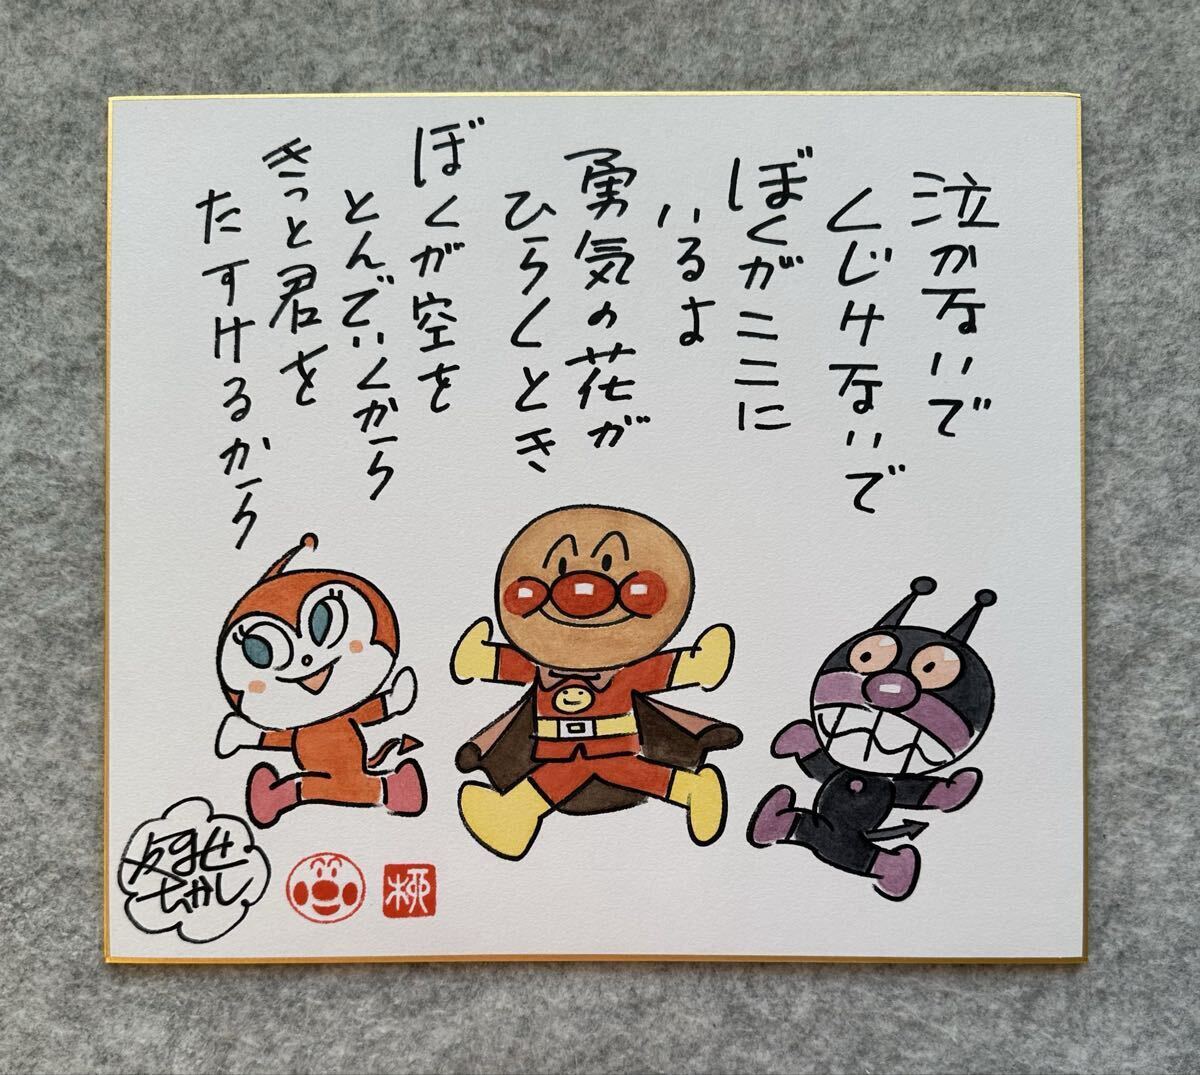 泣かないで
くじけないで
ぼくがここに
いるよ
勇気の花が
ひらくとき
ぼくが空を
とんでいくから
きっと君を
たすけるから
やなせ
たかし
柳